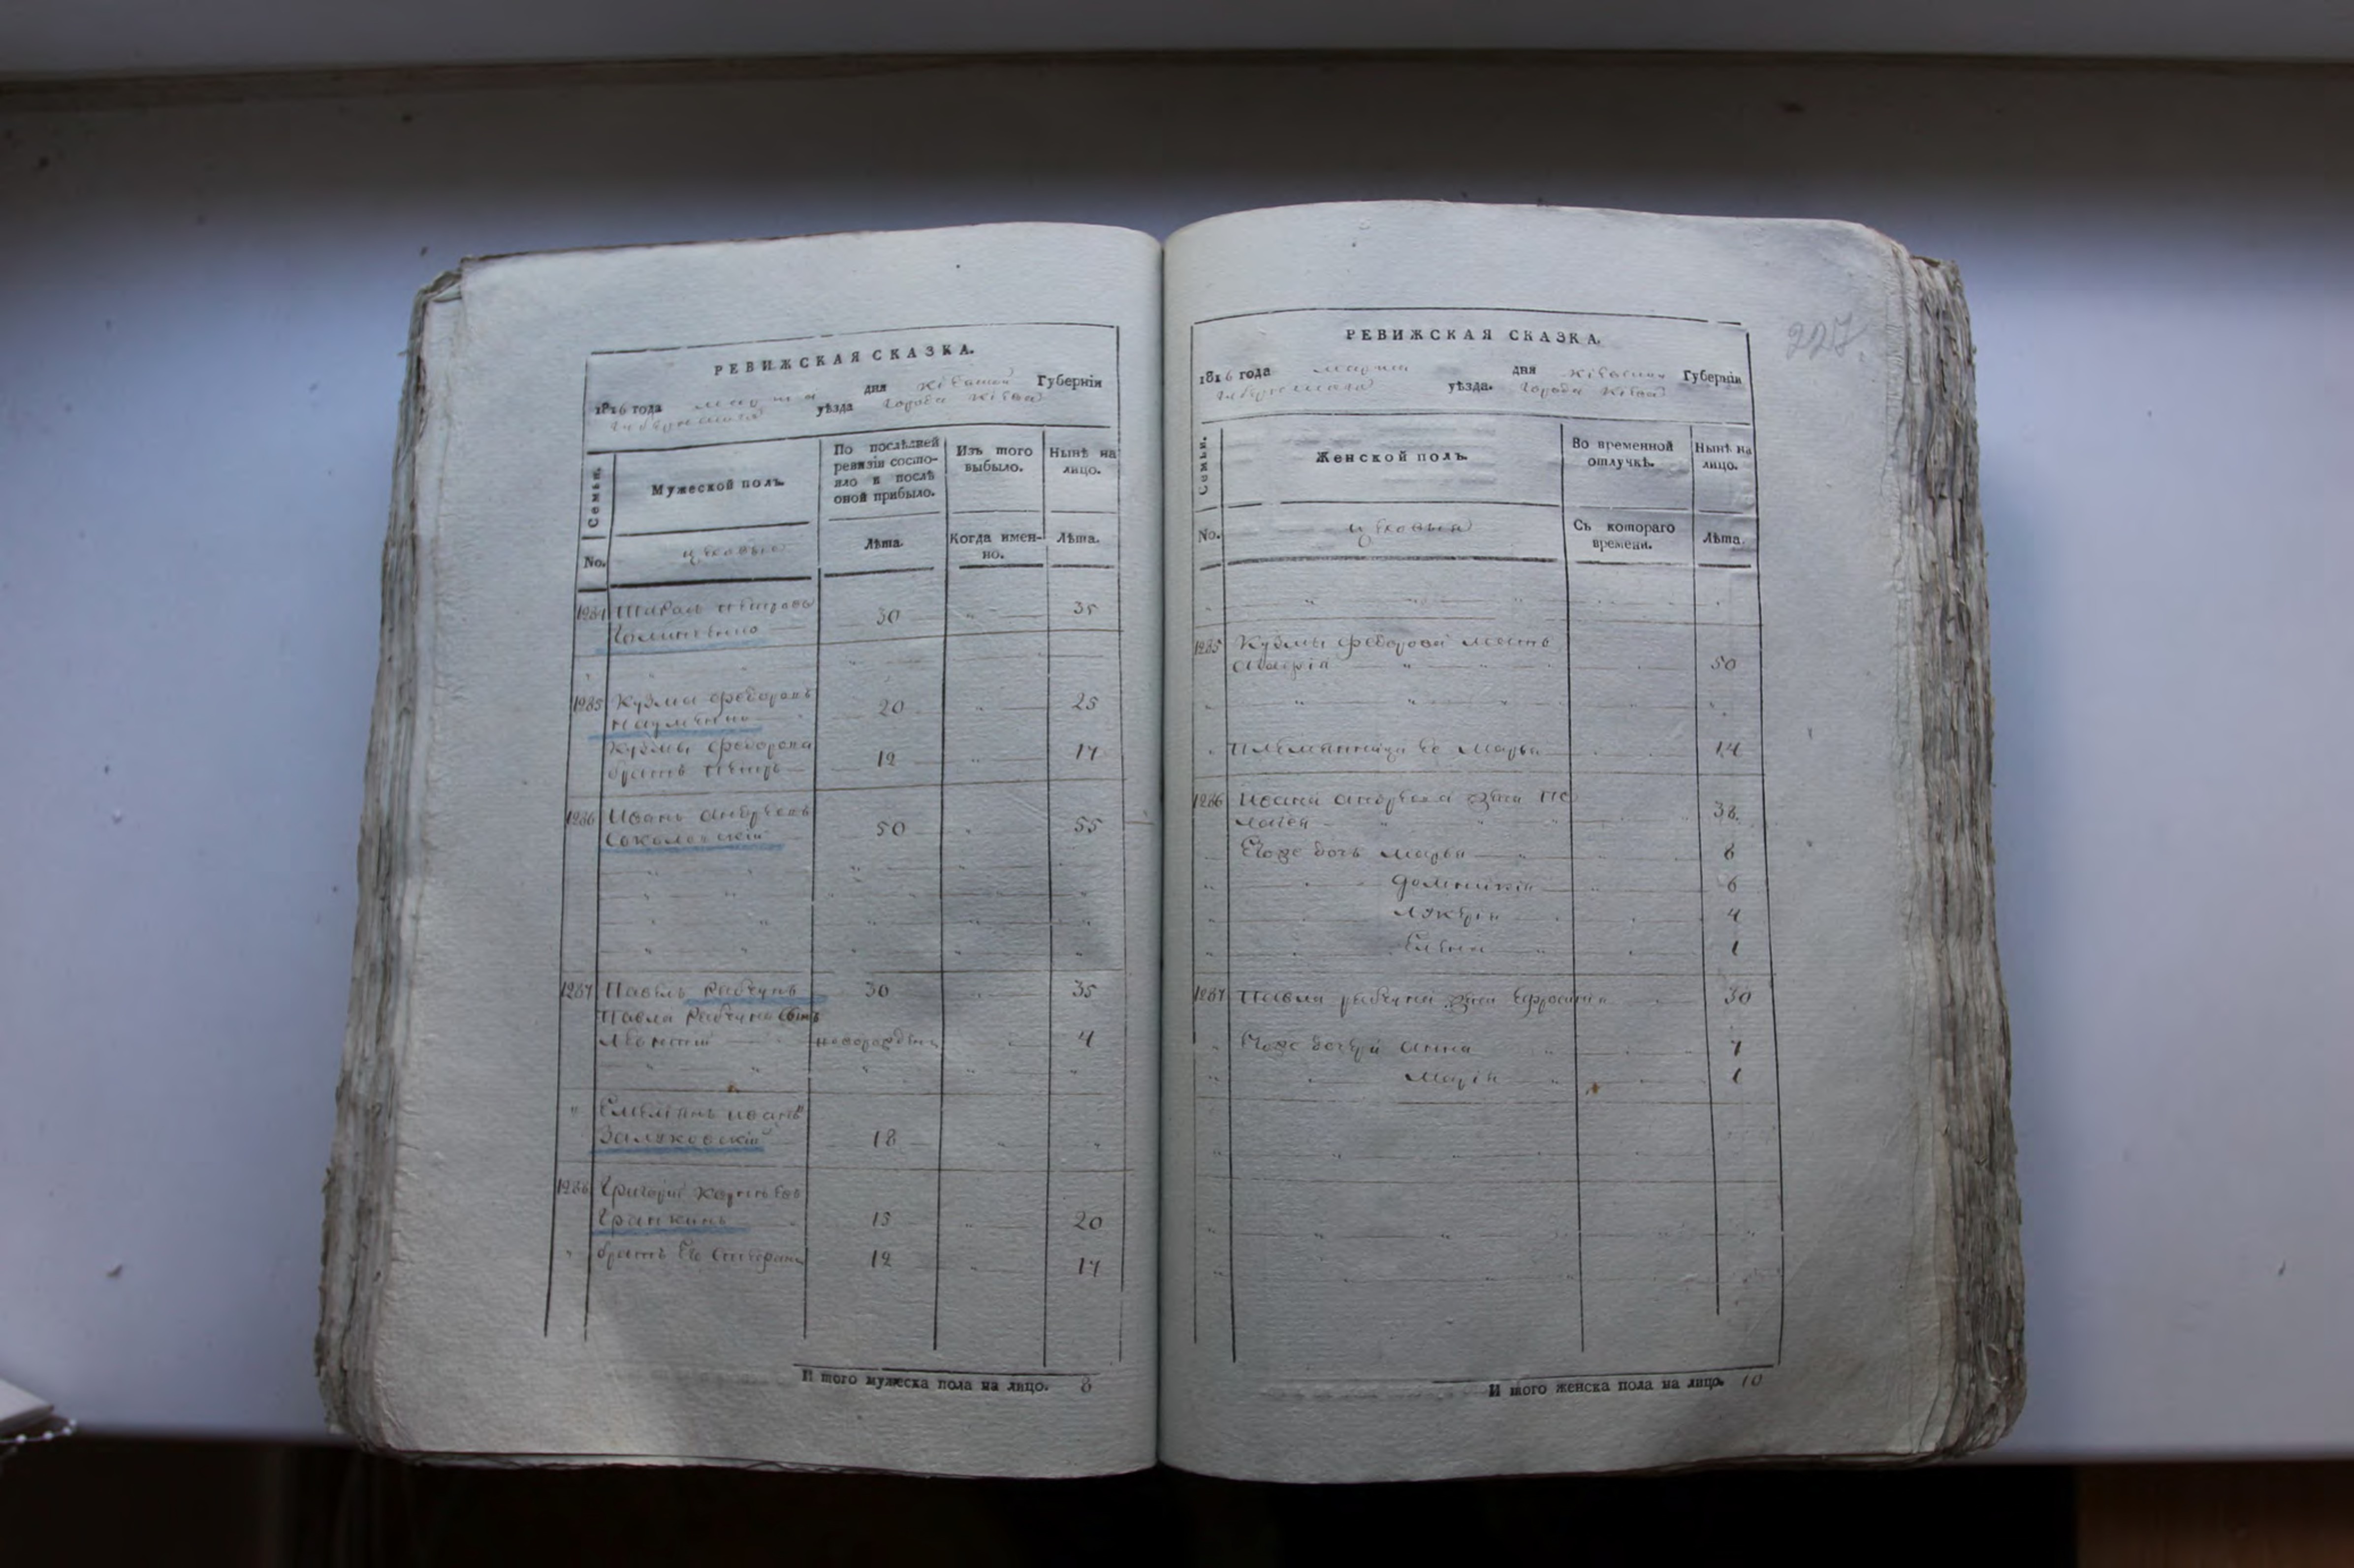 РЕВИЖСКАЯ СКАЗКА.
1816 года марта дня Кіевской Губерніи
уѣзда города Кіева
Семьи.
Мужеской полъ.
По послѣдней
ревизіи состо-
яло и послѣ
оной прибыло.
Изъ того
выбыло.
Нынѣ на
лицо.
No.
цеховыя
Лѣта.
Когда имен-
но.
Лѣта.
1284 Петровъ 30 35
1285 Кузма Федоровъ 20 25
Науменко
Кузмы Федорова
братъ Петръ 12 17
1286 Иванъ Андреевъ 50 55
Соколовскій
1287 Павелъ Рабчунъ 30 35
Павла Рабчуна сынъ
Леонтій новорожден 4
Емелianъ Иван
Залуковскій 18
1288 Григорій Корнѣев
Гранкинъ 15 20
братъ Его Стефанъ 12 17
И того мужеска пола на лицо. 8
227.
РЕВИЖСКАЯ СКАЗКА.
1816 года марта дня Кіевской Губерніи
уѣзда. города Кіева
Семьи.
Женской полъ.
Во временной
отлучкѣ.
Нынѣ на
лицо.
No.
цеховыя
Съ котораго
времени.
Лѣта.
1285 Кузмы Федорова мать
50
племянница Ее Марья 14
1286 Ивана Андреева жена Пе
лагея 38.
Егоже дочь Марья 8
Домникія 6
Лукерія 4
Елена 1
1287 Павла рабчуна жена Ефросинія 30
Егоже дочери Анна 7
Марія 1
И того женска пола на лицо. 10